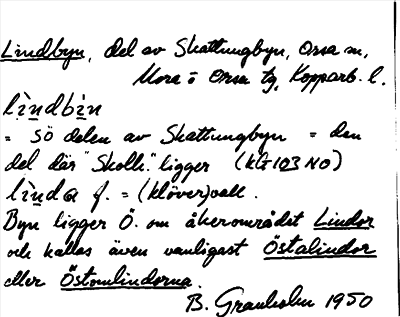 Lindbyn, del av Skattungbyn, Orsa sn,
Mora o Orsa tg, Kopparb. l.
lìndbìn
= SÖ delen av Skattungbyn = den
del där "Skolh." ligger (kbl 103 NO)
lìnda f. = (klöver)vall.
Byn ligger Ö. om åkerområdet Lindor
och kallas även vanligast Östalindor
eller Östomlindorna.
B. Granholm 1950